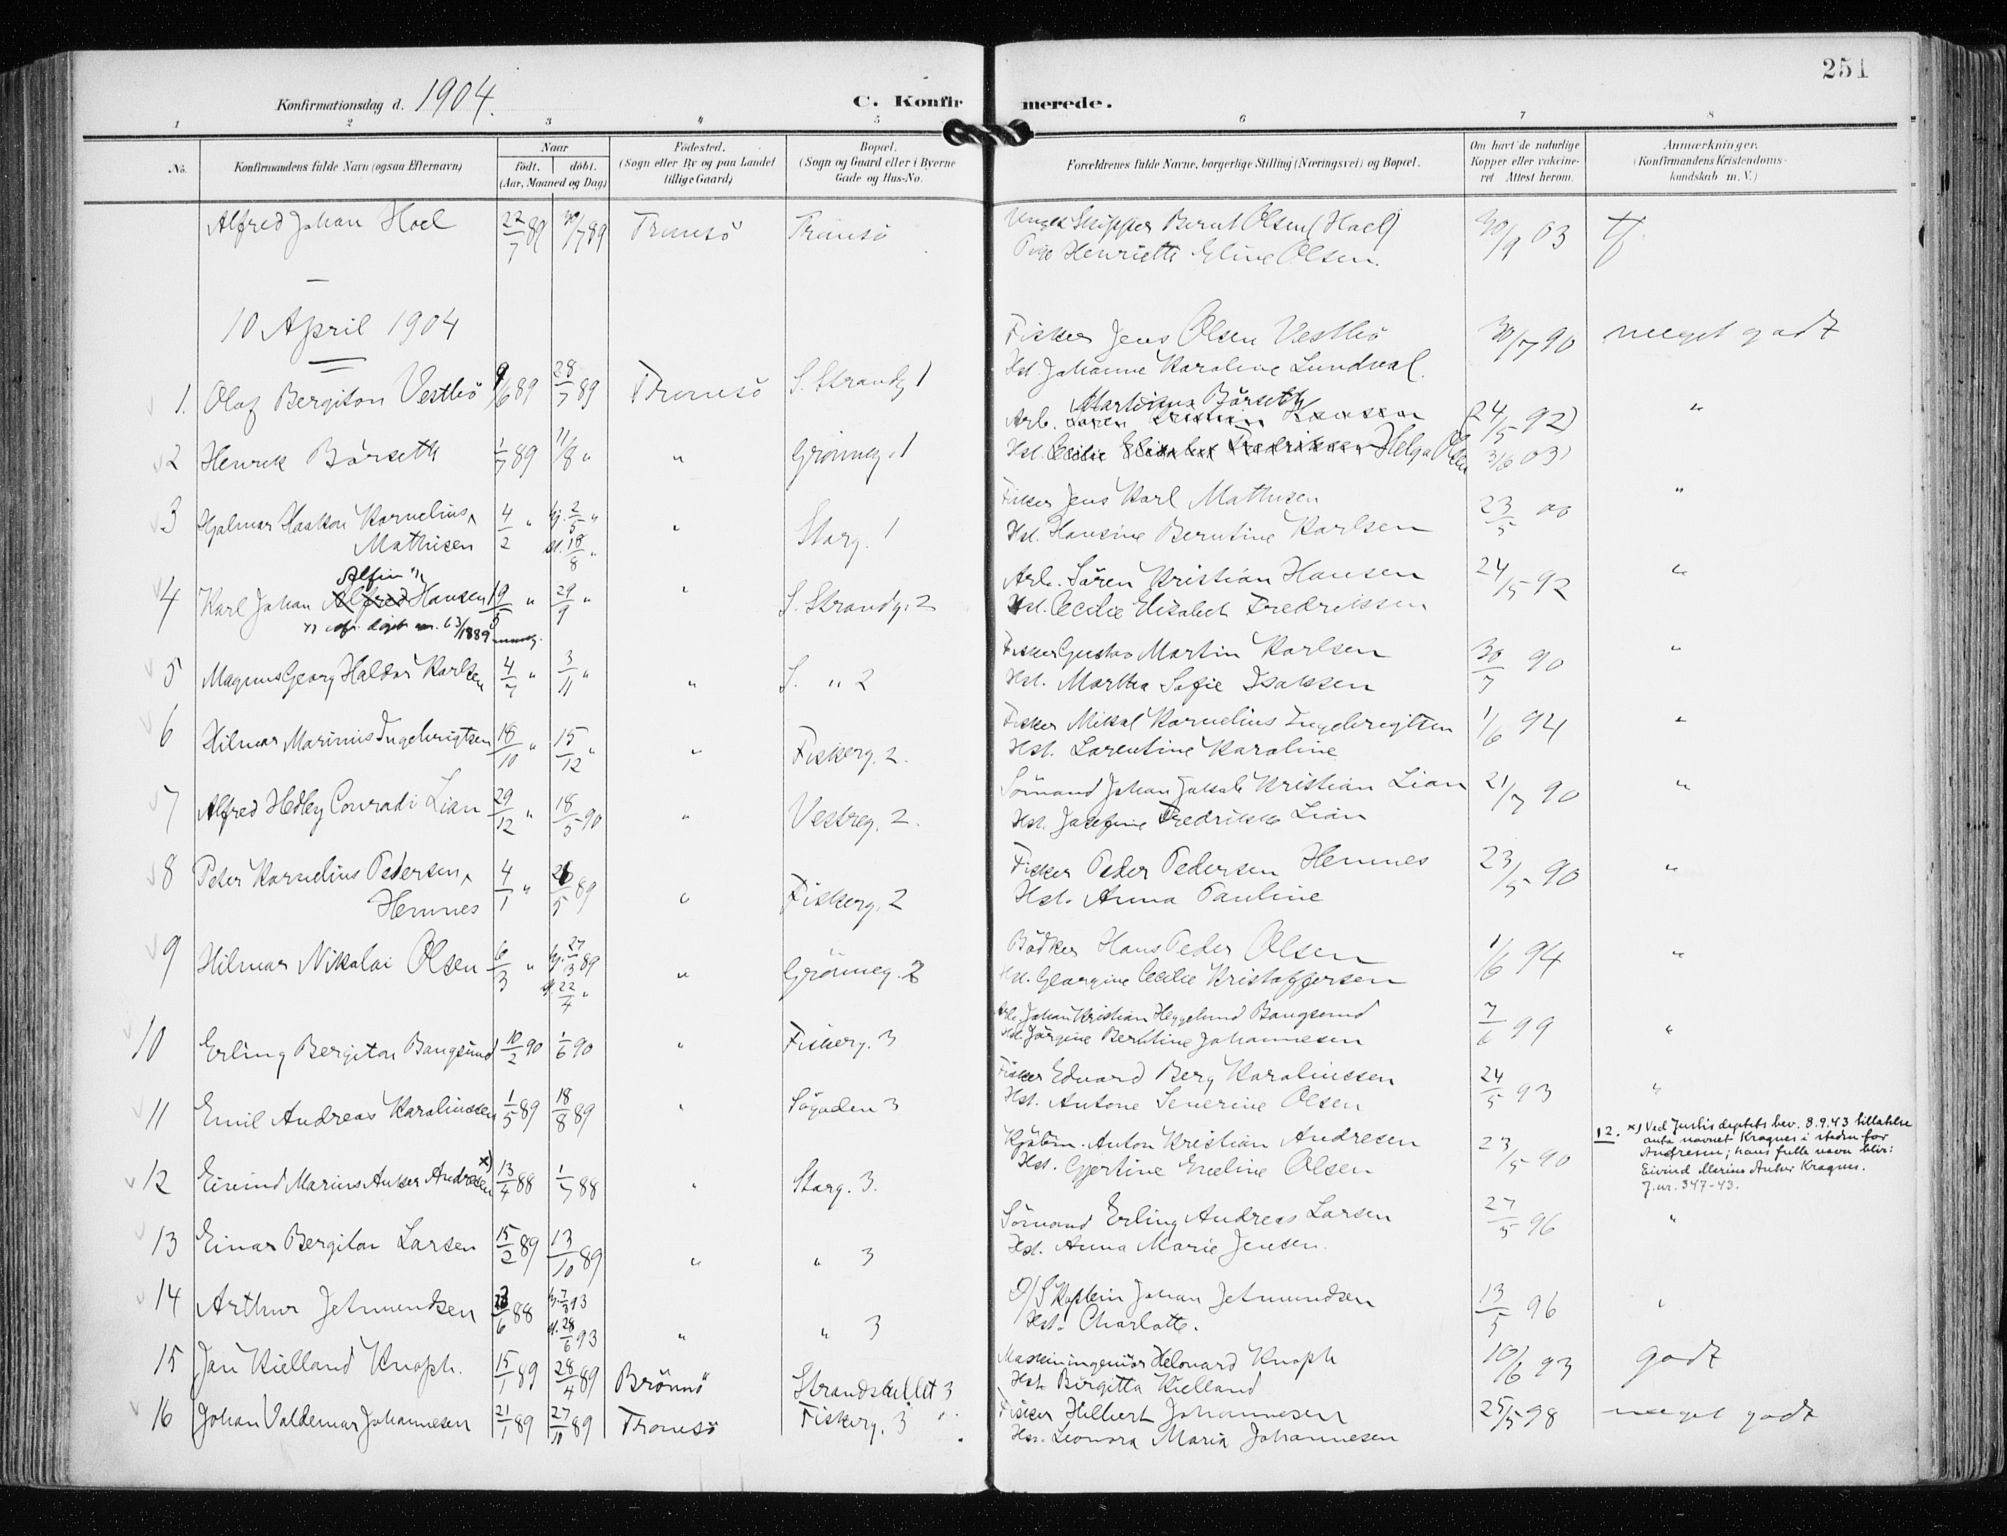 251
Konfirmationsdag d. 1904.
C. Konfirmerede.
1 2 3 4 5 6 7 8
No.
Konfirmandens fulde Navn (ogsaa Efternavn)
Naar
Født. døbt.
(Aar, Maaned og Dag)
Fødested.
(Sogn eller By og paa Landet
tillige Gaard)
Bopæl.
(Sogn og Gaard eller i Byerne
Gade og Hus-No.
Forældrenes fulde Navne, borgerlige Stilling (Næringsvei) og Bopæl.
Om havt de naturlige
Kopper eller vakcine-
ret Attest herom.
Anmærkninger.
(Konfirmandens Kristendoms-
kundskab m. V.)
Alfred Johan Hoel 22/7 89 30/7 89 Tromsö Tromsö Skipper Bernt Olsen (Hoel) 30/9 03 tf.
Pige Henriette Eline Olsen.
10 April 1904
Fisker Jens Olsen Vestbö 30/7 90 meget godt
1. Olaf Bergiton Vestbö 9/6 89 28/7 89 Tromsö S. Strandg 1 Hst. Johanne Karoline Lundval.
Martinus Börseth
2 Henrik Börseth 1/7 89 11/8 " " Grönneg. 1 Arb. Sören Kristian Hansen (24/5 92) "
Hst. Cecilie Elisabet Fredriksen Helga Olsen 3/6 03)
3 Hjalmar Haakon Kornelius 4/2 " hj. 2/5 " " Storg. 1 Fisker Jens Karl Mathisen 23/5 00 "
Mathisen st. 18/8 " Hst. Hansine Berntine Karlsen
Alfin x)
4 Karl Johan Alfred Hansen 19/8 " 29/9 " " S. Strandg. 2 Arb. Sören Kristian Hansen 24/5 92 "
Hst. Cecilie Elisabet Fredrikssen
5 Magnus Georg Haldor Karlsen 4/7 " 3/11 " " S. " 2 Fisker Gustav Martin Karlsen 30/7 90 "
Hst. Martha Sofie Isaksen
6 Hilmar Marinius Ingebrigtsen 18/10 " 15/12 " " Fiskerg. 2. Fisker Mikal Kornelius Ingebrigtsen 1/6 94 "
Hst. Lorentine Karoline
7 Alfred Hedley Conradi Lian 29/12 " 18/5 90 " Vestreg. 2. Sömand Johan Jakob Kristian Lian 21/7 90 "
Hst. Josefine Fredrikke Lian
8 Peter Kornelius Pedersen 4/1 " 26/5 89 " Fiskerg. 2 Fisker Peder Pedersen Hemnes 23/5 90 "
Hemnes Hst. Anna Pauline
9 Hilmar Nikolai Olsen 6/3 " hj. 27/3 89 " Grönneg. 2 Bödker Hans Peder Olsen 1/6 94 "
st. 22/4 " Hst. Georgine Cecilie Kristoffersen
10 Erling Bergiton Bangsund 10/2 90 1/6 90 " Fiskerg. 3 Arb. Johan Kristian Heggelund Bangsund 7/6 99 "
Hst. Jörgine Berntine Johannesen
11 Emil Andreas Karolinssen 1/5 89 18/8 89 " Sögaden 3 Fisker Edvard Berg Karolinssen 24/5 93 "
Hst. Antone Severine Olsen
12 Eivind Marius Anker Andresen x) 13/4 88 1/7 88 " Storg. 3. Kjöbm. Anton Kristian Andresen 23/5 90
Hst. Gjertine Emeline Olsen
12. x) Ved Justisdeptets bev. 8.9.43 tillatelse
anta navnet Kragnes i steden for
Andresen; hans fulle navn blir:
Eivind Marius Anker Kragnes.
J.nr. 347-43.
13 Einar Bergiton Larsen 15/2 89 13/10 89 " " 3 Sömand Erling Andreas Larsen 27/5 96 "
Hst. Anna Marie Jensen.
14 Arthur Jetmundsen 23/6 88 hj. 7/3 93 " " 3 D/S Kaptein Johan Jetmundsen 13/5 96 "
st. 28/6 93 Hst. Charlotte.
15 Jan Kielland Knoph. 15/1 89 28/4 89 Brönnö Strandskillet 3 Maskiningeniör Helvard Knoph 10/6 93 godt
Hst. Birgitta Kielland
16 Johan Valdemar Johannesen 21/1 89 27/11 89 Tromsö Fiskerg. 3 Fisker Hilbert Johannesen 25/5 98 meget godt
Hst. Leonora Maria Johannesen